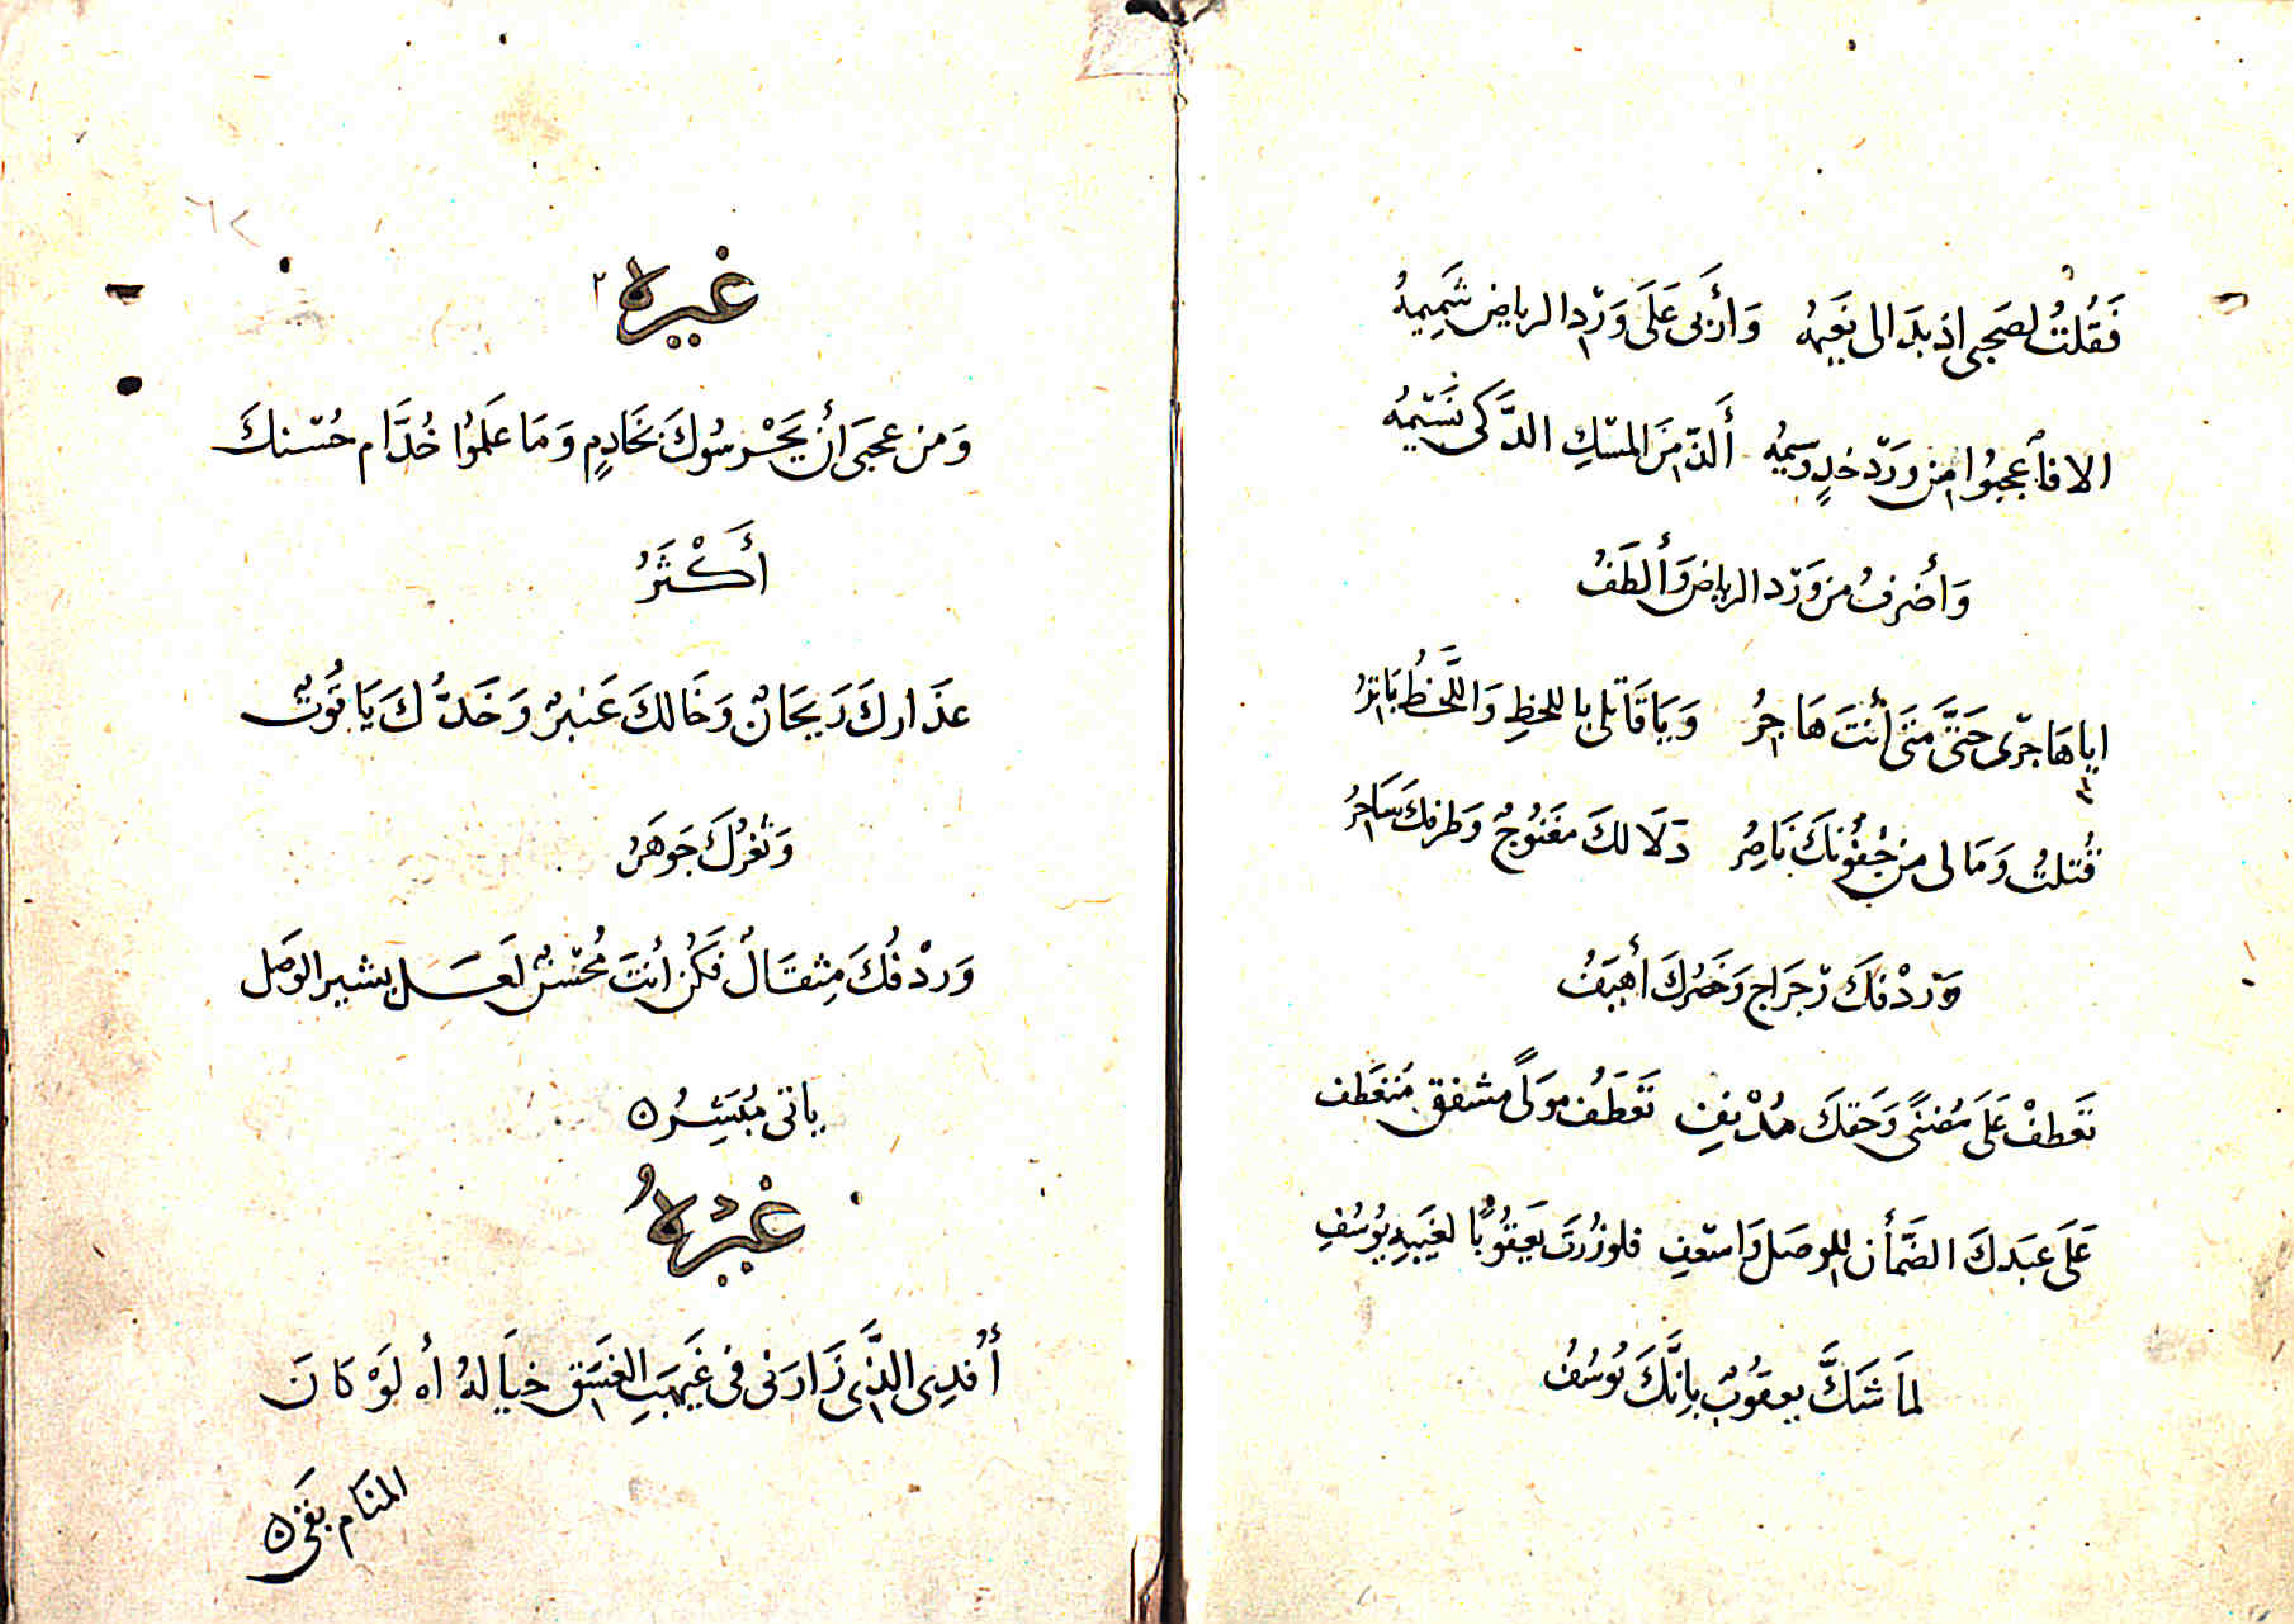 فَقُلتُ لصَحبى اذ بدَا لى نَعِيمهُ وَأَربَى عَلَى وَرْدِ الرياضِ شَمِيمهُ
الا فأعجبُوا من وَرْد خدٍ وسيمُه أَلذّ مِنَ المسْكِ الذَّكى نَسَيمُه
وَأَضرفُ من وَرْد الرياض وَألطَفُ
ايا هَاجرْى حَتَّى مَتَى أنتَ هَاجِرُ وَيَا قَاتلى باللحظِ وَاللَّحْظُ بَاترُ
قُتلتُ وَمَا لى من جُفُونكَ نَاصِرُ دَلَا لكَ مغنُوجٌ وَطرفكَ سَاحِرُ
وَرْدْفكَ رَجرَاج وَخَصْرُكَ أَهيَفُ
تَعَطفْ عَلَى مُضنىً وَحَقكَ مُدْنِفِ تَعَطَفُ مَولىً مشفق مُتعَطف
عَلَى عبَدكَ الضَمأن للوصَل وَاسْعَفِ فلو زُرتَ يعَقُوبًا لغيبَهِ يوُسُفِ
لمَا شَكَّ يعقوُبٌ بِانَّكَ يُوسُفُ
٦٢
غيره
وَمن عجبَى أَن يَحْرسُوكَ بخَادِمٍ وَمَا عَلمَوُا خُدَّام حُسْنكَ
أَكْثَرُ
عذَاركَ رَيحَانٌ وَخَالكَ عَنبرٌ وَخَدُّكَ يَاقوُتٌ
وَثغرُكَ جَوهَرُ
وَردْفُكَ مِثقَالٌ فَكُن أنتَ مُحْسنٌ لَعَسَل بشير الوَصل
ياتى مبُشِّرُ ٥
غيْرهُ
أفدِى الذَّى زَارَنى فى غَيهَبِ الغسَق خيَالهُ أه لَوْ كَانَ
المنَام بَقىَ ٥